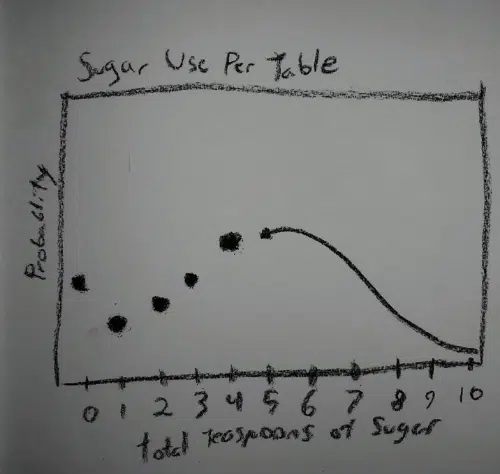 Sugar Use Per Table
Probability
0 1 2 3 4 5 6 7 8 9 10
total teaspoons of Sugar